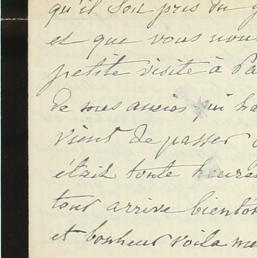 qu'il soit pris du g
et que vous nous
petite visite à Pa
de nous aussi qui ha
vient de passer
était toute heure
tour arrive bientô
et bonheur voila me